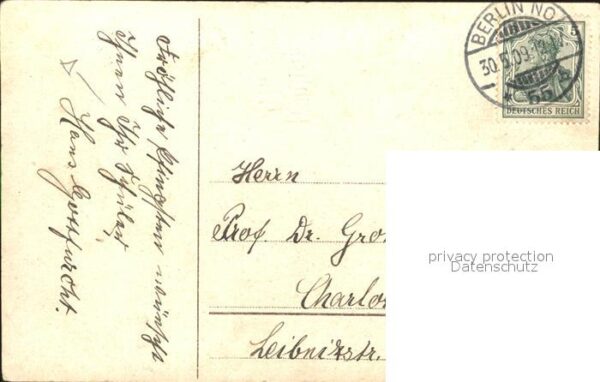 Fröhliche Pfingsten wünscht
Ihnen Ihr Schüler
Hans Gottfurcht.
BERLIN NO
30.5.09.
* 55
DEUTSCHES REICH
Herrn
Prof. Dr.
Leibnizstr.
privacy protection
Datenschutz